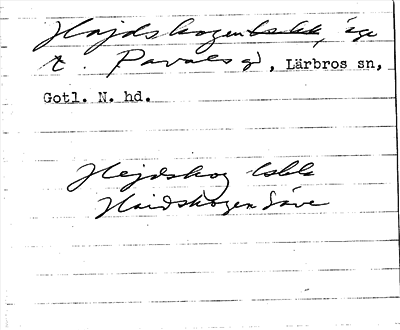 Hajdskogen, äga
t. Pavals gd, Lärbros sn,
Gotl. N. hd.
Hejdskog
Haidskogen Säve